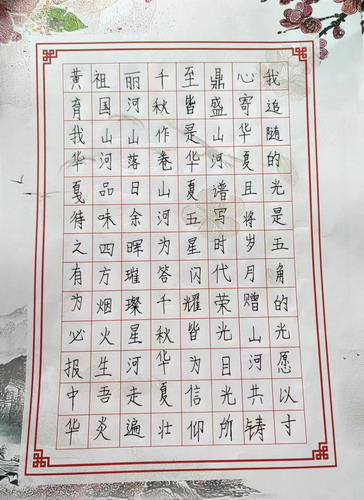 我追随的光是五角的光愿以寸
心寄华夏且将岁月赠山河共铸
鼎盛山河谱写时代荣光目光所
至皆是华夏五星闪耀皆为信仰
千秋作卷山河为答千秋华夏壮
丽河山落日余晖璀璨星河走遍
祖国山河品味四方烟火生吾炎
黄有我华夏待之有为必报中华